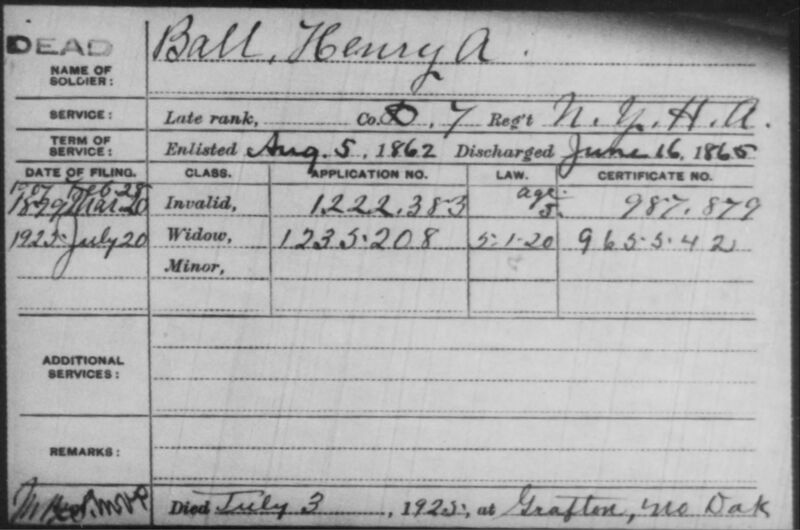 DEAD
Ball, Henry A.
NAME OF SOLDIER:
SERVICE: Late rank, Co. D. 7 Reg't N. Y. H. A.
TERM OF SERVICE: Enlisted Aug. 5, 1862 Discharged June 16, 1865
DATE OF FILING. CLASS. APPLICATION NO. LAW. CERTIFICATE NO.
1907 Feb 28 age
1899 Mar 20 Invalid, 1.222.383 5. 987.879
1925 July 20 Widow, 1235208 5-1-20 965542
Minor,
ADDITIONAL SERVICES:
REMARKS:
Died July 3, 1925, at Grafton, No Dak